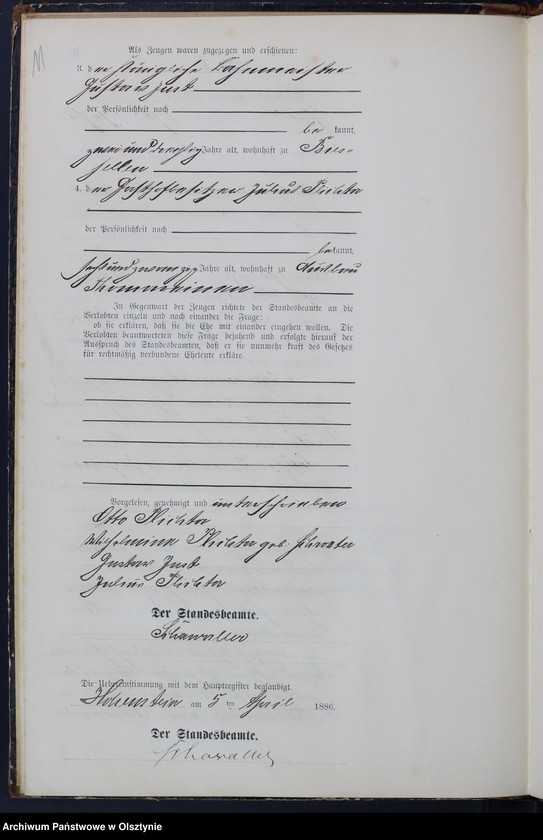 Als Zeugen waren zugezogen und erschienen:
3. der königliche Bahnmeister
Gustav Just
der Persönlichkeit nach
be kannt,
zweiunddreißig Jahre alt, wohnhaft zu
4. der Gasthofbesitzer Julius
der Persönlichkeit nach
bekannt,
sechsundzwanzig Jahre alt, wohnhaft zu
In Gegenwart der Zeugen richtete der Standesbeamte an die
Verlobten einzeln und nach einander die Frage:
ob sie erklären, daß sie die Ehe mit einander eingehen wollen. Die
Verlobten beantworteten diese Frage bejahend und erfolgte hierauf der
Ausspruch des Standesbeamten, daß er sie nunmehr kraft des Gesetzes
für rechtmäßig verbundene Eheleute erkläre.
Vorgelesen, genehmigt und unterschrieben
Otto
Wilhelmine geb.
Gustav Just
Julius
Der Standesbeamte.
Die Uebereinstimmung mit dem Hauptregister beglaubigt.
Hohenstein am 5 ten April 1886.
Der Standesbeamte.
Archiwum Państwowe w Olsztynie